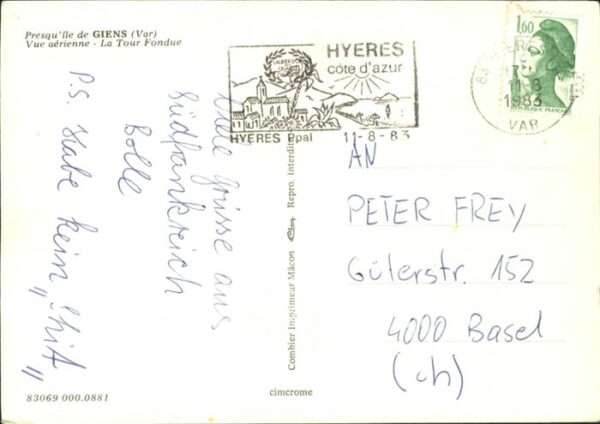 Presqu'île de GIENS (Var)
Vue aérienne - La Tour Fondue
HYERES
côte d'azur
HYERES Ppal 11-8-83
1,60
1983
VAR
Viele Grüsse aus
Südfrankreich
Bolle
P.S. Habe kein "Shit"
AN
PETER FREY
Gülerstr. 152
4000 Basel
(ch)
Combier Imprimeur Mâcon Repro. interdite
cimcrome
83069 000.0881